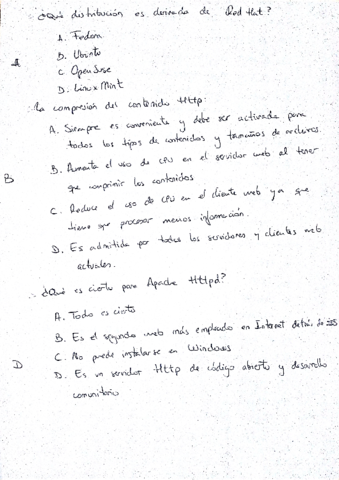 ¿Qué distribución es derivada de Red Hat?
A. Fedora
B. Ubuntu
A
C. OpenSuse
D. Linux Mint
La compresión del contenido Http:
A. Siempre es conveniente y debe ser activada para
todos los tipos de contenidos y tamaños de archivos.
B. Aumenta el uso de CPU en el servidor web al tener
B
que comprimir los contenidos
C. Reduce el uso de CPU en el cliente web ya que
tiene que procesar menos información.
D. Es admitida por todos los servidores y clientes web
actuales.
¿Qué es cierto para Apache Httpd?
A. Todo es cierto
B. Es el segundo web más empleado en Internet detrás de IIS
C. No puede instalarse en Windows
D
D. Es un servidor Http de código abierto y desarrollo
comunitario